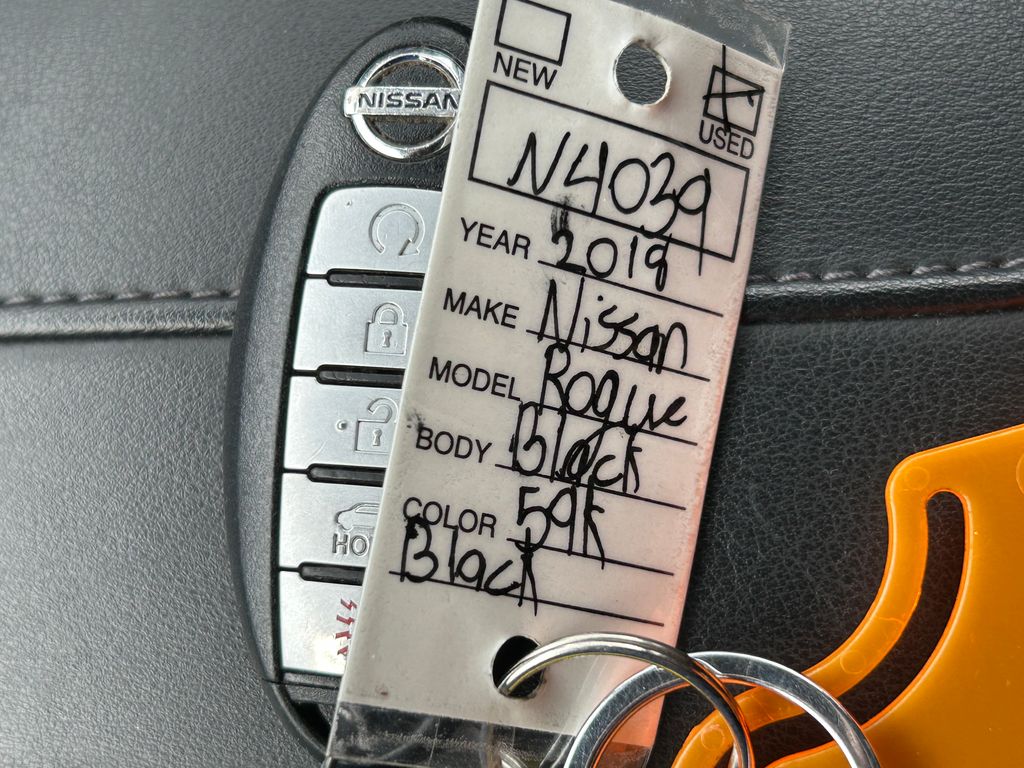 NISSAN
HO
NEW
USED
N4039
YEAR 2018
MAKE Nissan
MODEL Rogue
BODY Black
COLOR 59K
Black